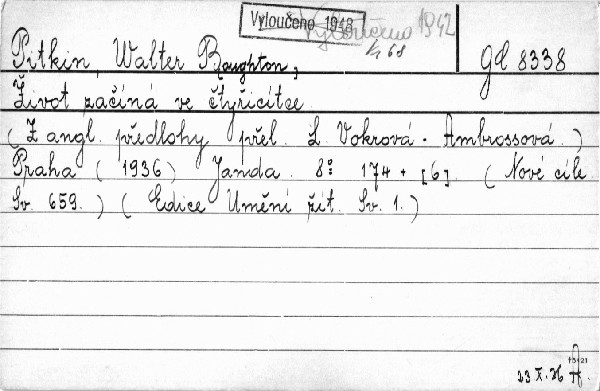 Vyloučeno 1948
Vyloučeno 1942
Pitkin, Walter Boughton,
Gd 8338
Život začíná ve čtyřicítce.
(Z angl. předlohy přel. L. Vokrová - Ambrossová.)
Praha (1936) Janda. 8° 174 + [6]. (Nové cíle
Sv. 659.) (Edice Umění žít. Sv. 1.)
23 X. 36